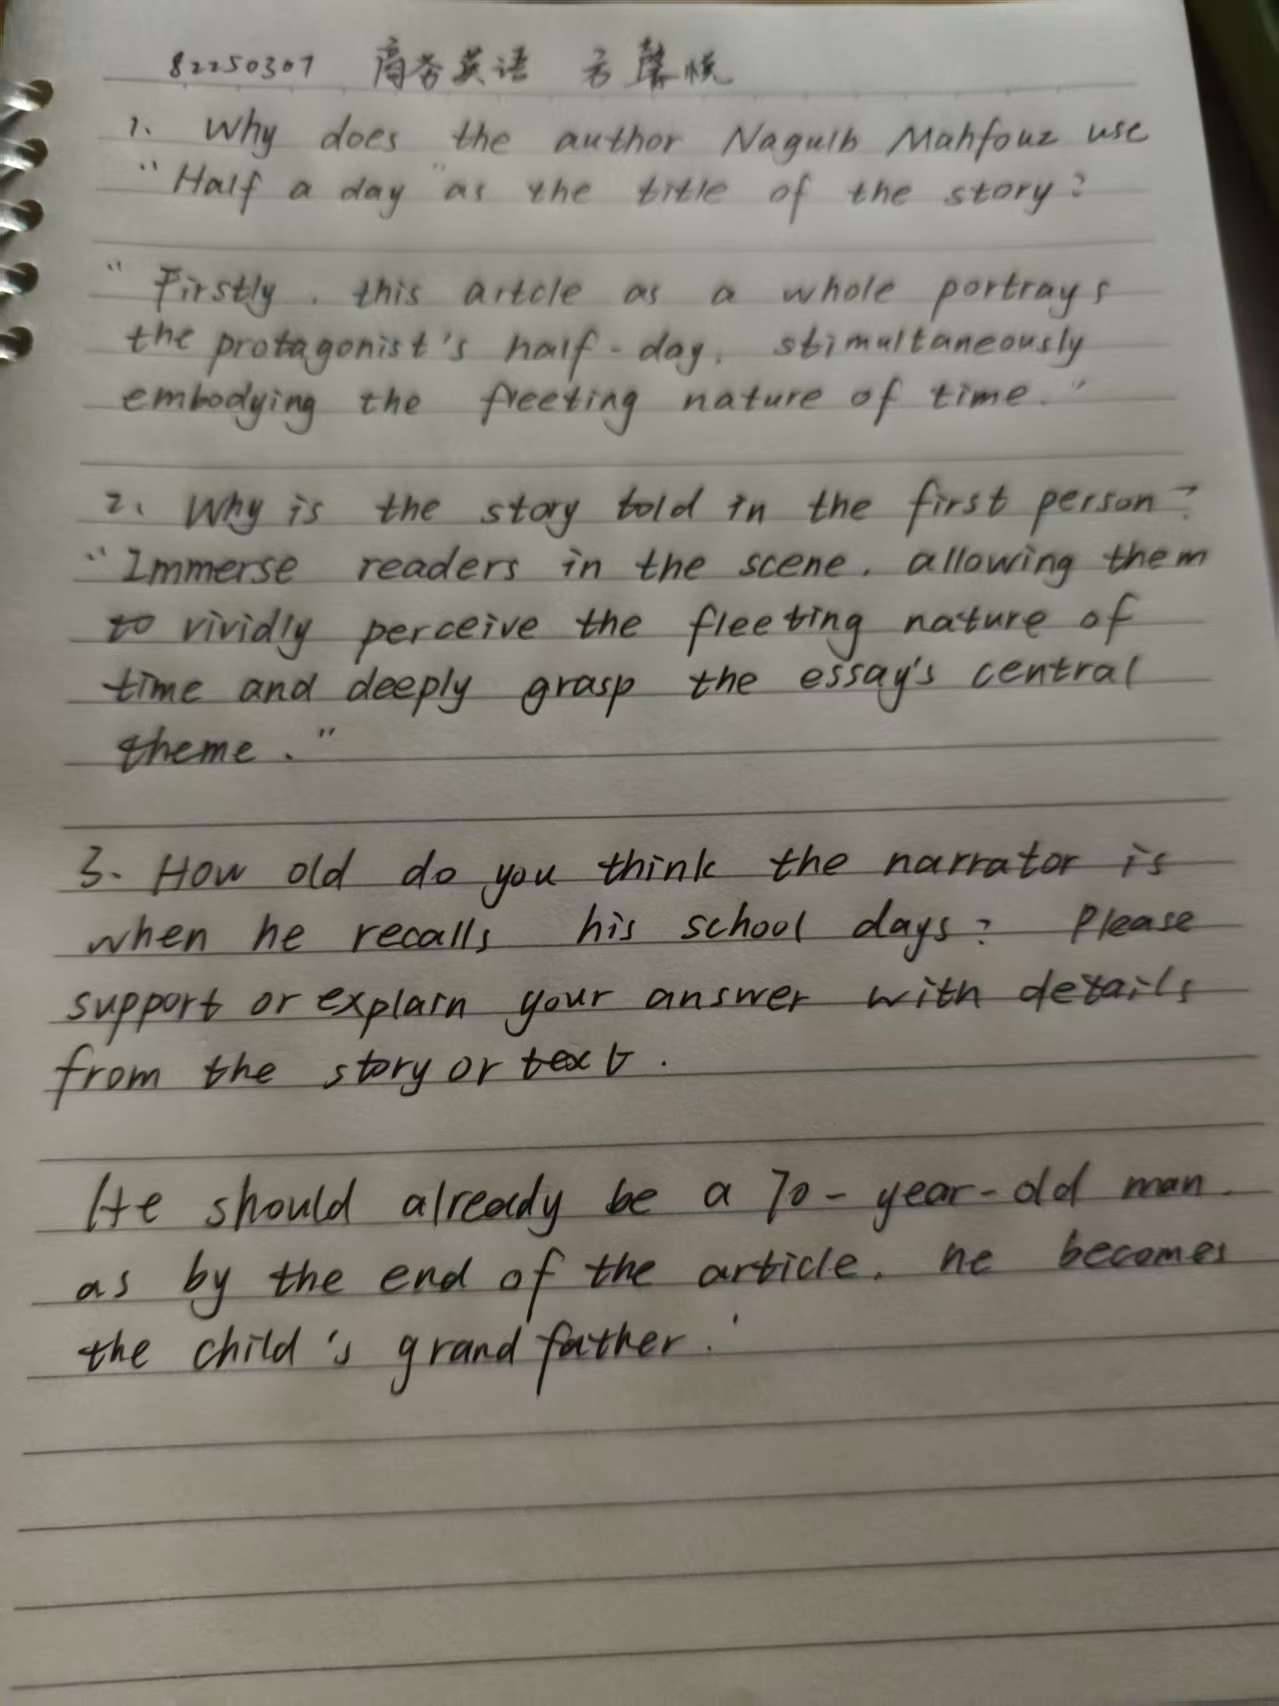 82250307 商务英语 方馨悦
1. Why does the author Naguib Mahfouz use
"Half a day" as the title of the story?
"Firstly, this artcle as a whole portrays
the protagonist's half-day, stimultaneously
embodying the fleeting nature of time."
2. Why is the story told in the first person?
"Immerse readers in the scene, allowing them
to vividly perceive the fleeting nature of
time and deeply grasp the essay's central
theme."
3. How old do you think the narrator is
when he recalls his school days? Please
support or explain your answer with details
from the story or text.
He should already be a 70-year-old man.
as by the end of the article, he becomes
the child's grandfather.'